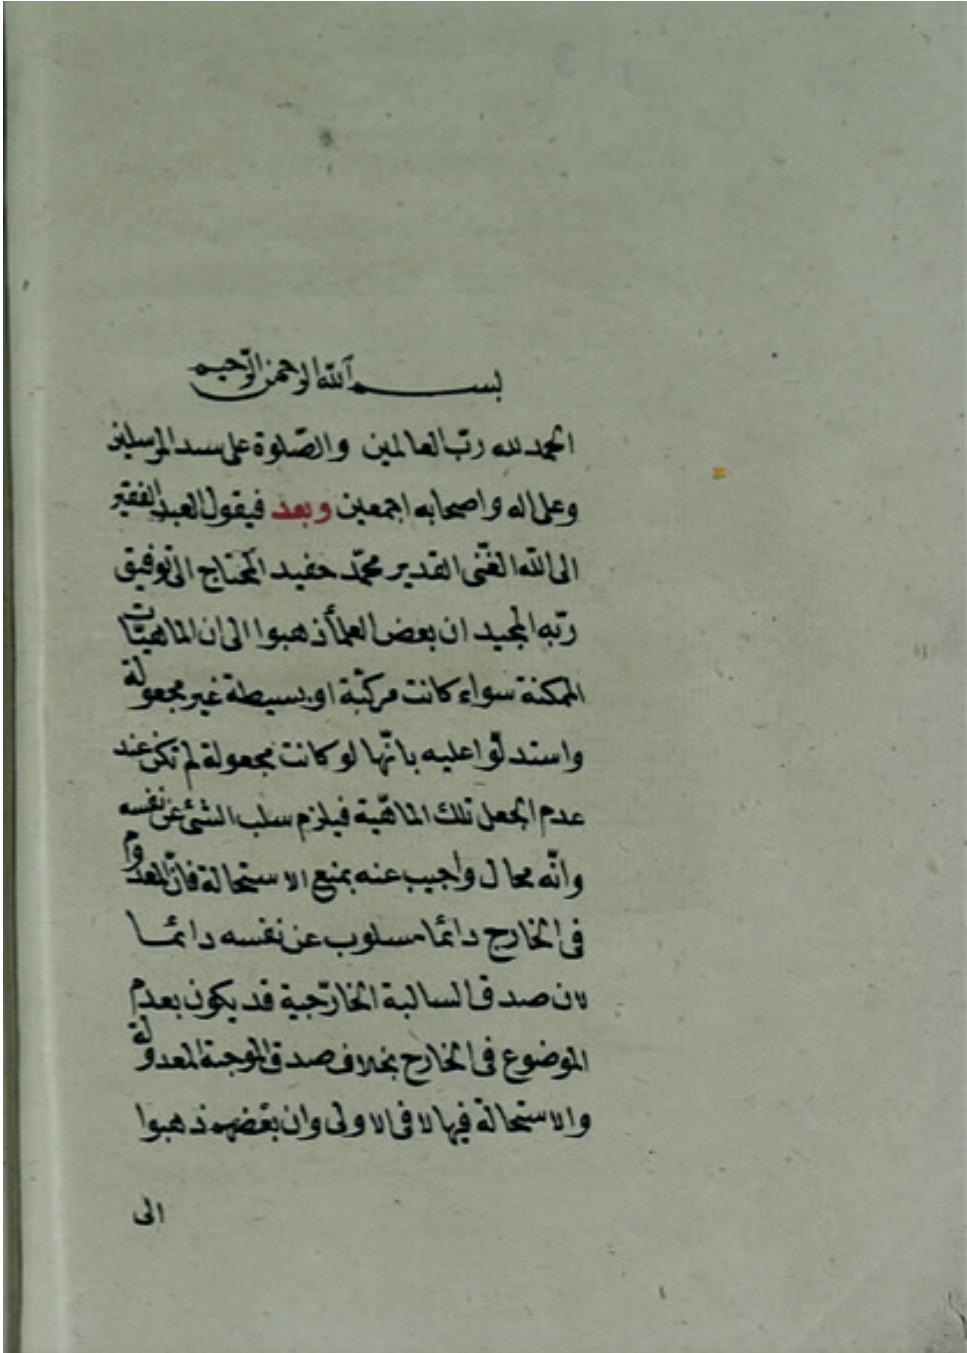 بسم الله الرحمن الرحيم
الحمد لله رب العالمين والصلوة على سيد المرسلين
وعلى اله واصحابه اجمعين وبعد فيقول العبد الفقير
الى الله الغنى القدير محمد حفيد المحتاج الى توفيق
ربه المجيد ان بعض العلمأ ذهبوا الى ان الماهيات
الممكنة سواء كانت مركبة او بسيطة غير مجعولة
واستدلوا عليه بانها لو كانت مجعولة لم تكن عند
عدم الجعل تلك الماهية فيلزم سلب الشئ عن نفسه
وانه محال واجيب عنه بمنع الاستحالة فان المعدوم
فى الخارج دائما مسلوب عن نفسه دائما
لان صدق السالبة الخارجية قد يكون بعدم
الموضوع فى الخارج بخلاف صدق الموجبة المعدولة
والاستحالة فيها لا فى الاولى وان بعضهم ذهبوا
الى